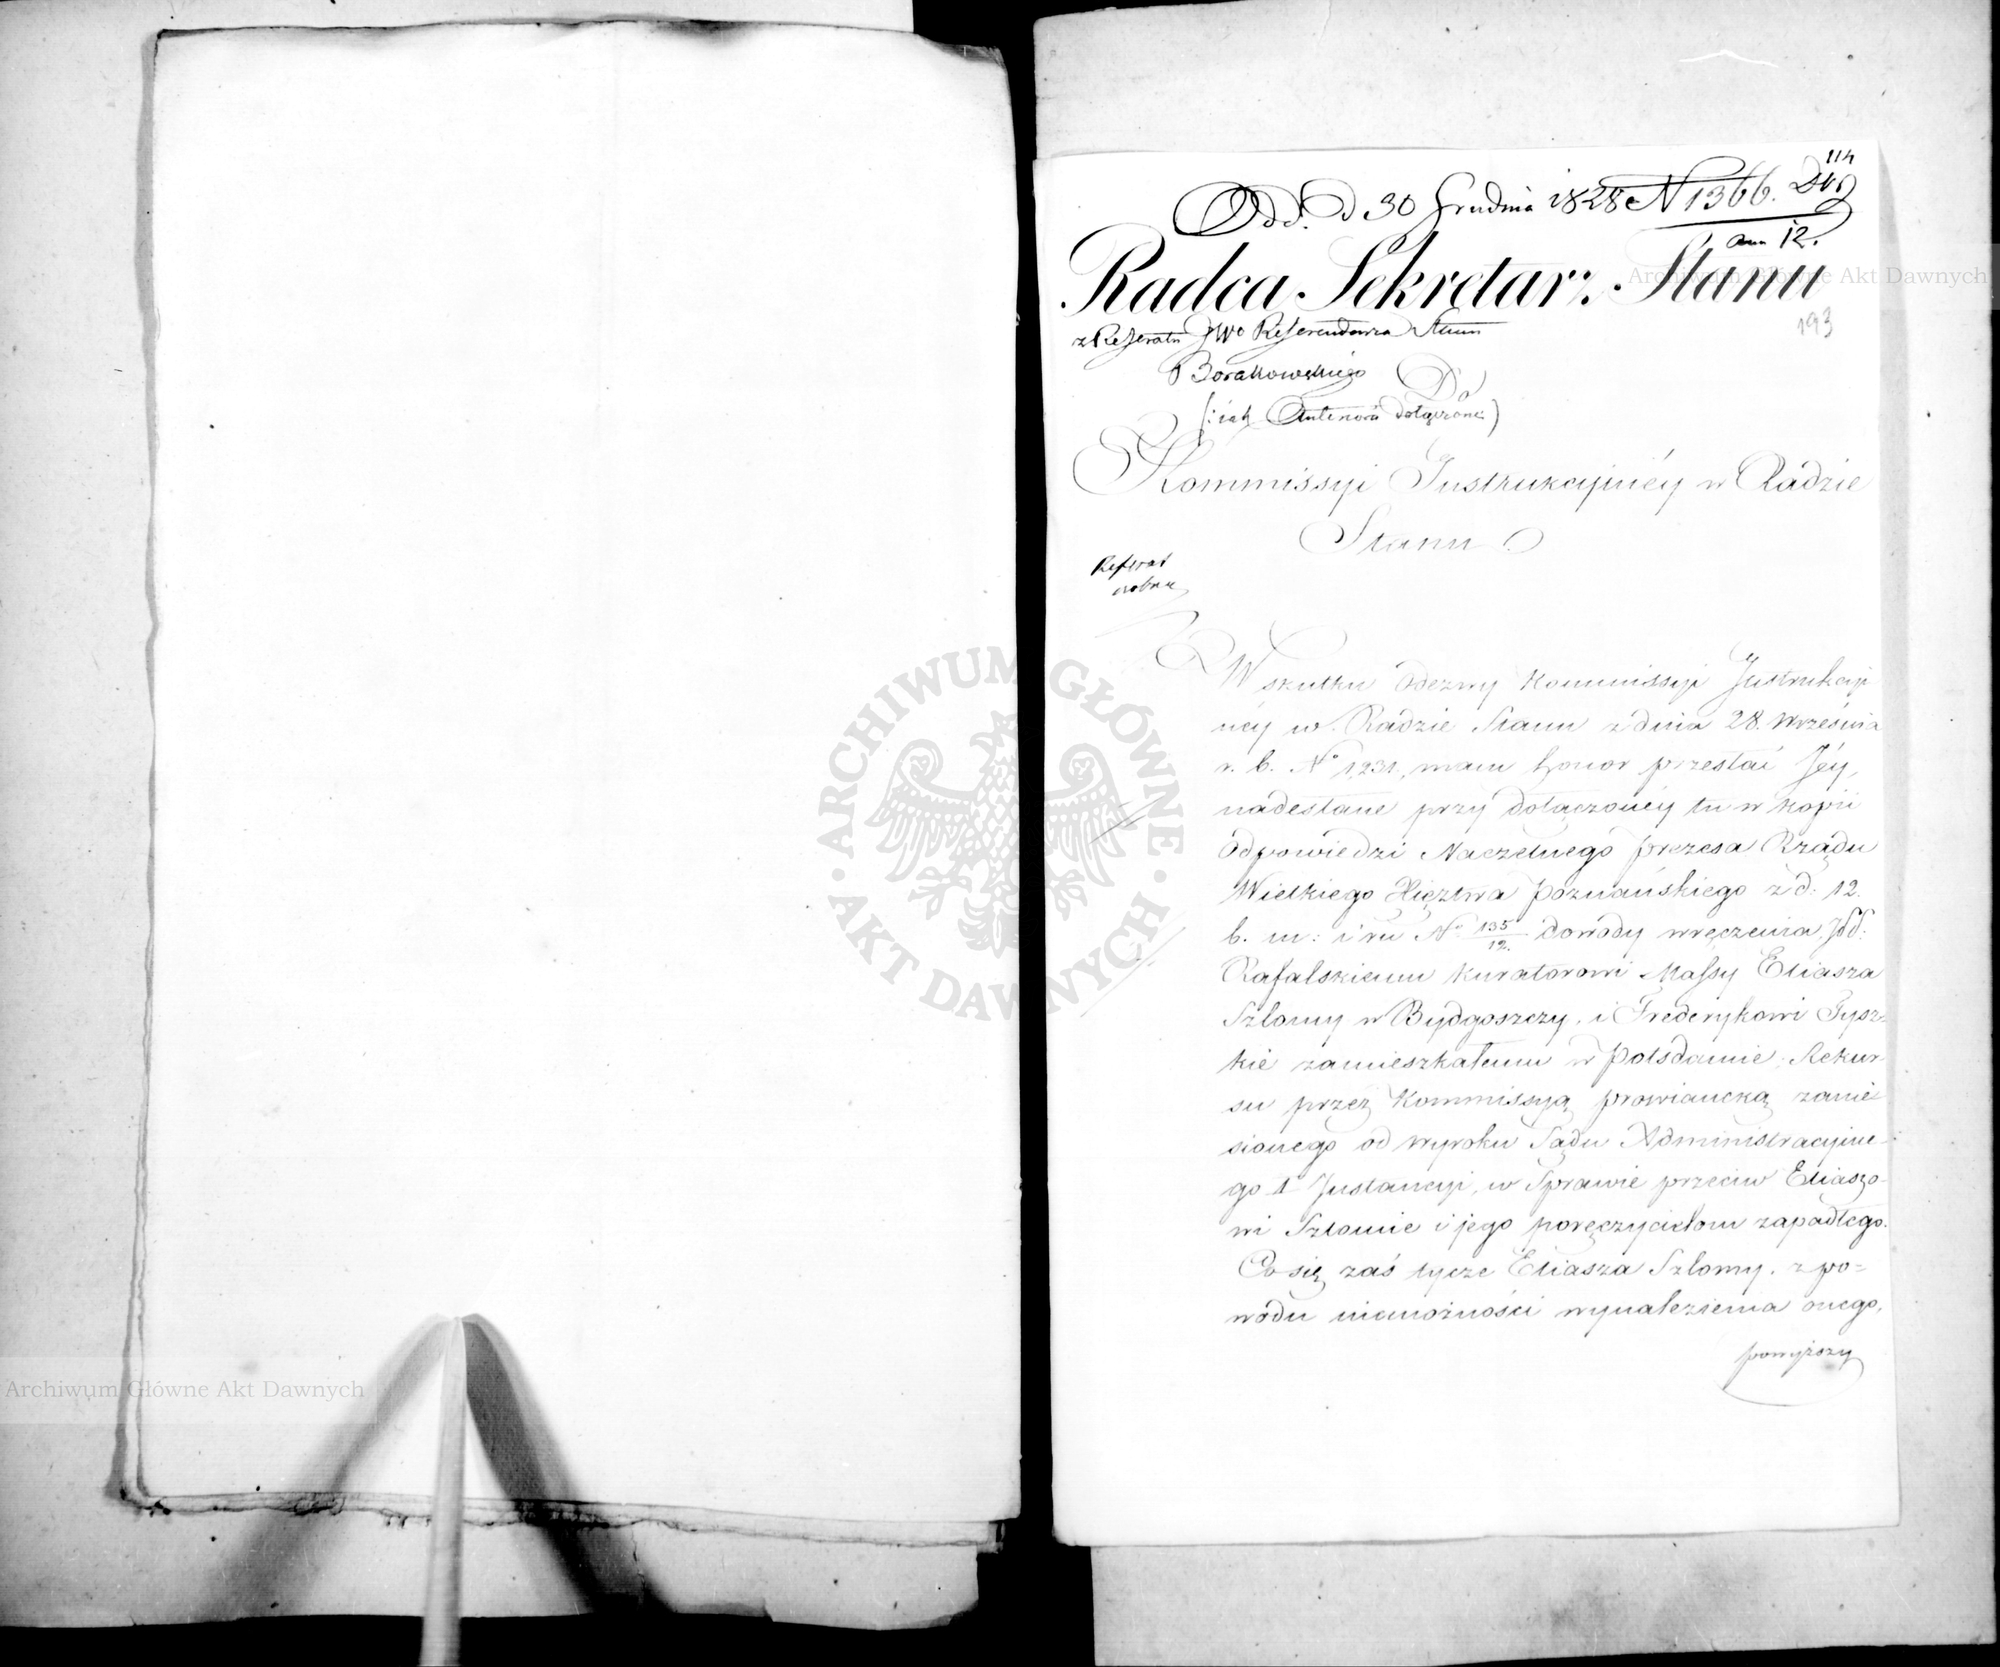 114
Odd. d 30 Grudnia 1828 N 1366. Div
ann 12.
Radca Sekretarz Stanu
193
z Referatu JWo Referendarza Stanu
Borakowskiego
Do
(: iak Antenora dołączone)
Kommissyi Instrukcyinéy w Radzie
Stanu.
Referat
osobne
W skutku Odezwy Kommissyi Instrukcyi
néy w Radzie Stanu z dnia 28. Września
r. b. No 1231, mam honor przesłać Jéy,
nadesłane przy dołączonéy tu w kopii
Odpowiedzi Naczelnego Prezesa Rządu
Wielkiego Xięztwa Poznańskiego z d. 12.
b. m: i ru No 135/12. dowody wręczenia, JPP:
Rafalskiemu Kuratorowi Massy Eliasza
Szlomy w Bydgoszczy, i Frederykowi Tysz-
kie zamieszkałemu w Potsdamie, Rekur-
su przez Kommissyą prowiancką zanie-
sionego od wyroku Sądu Administracyine-
go 1 Instancyi, w Sprawie przeciw Eliaszo-
wi Szlomie i jego poręczycielom zapadłego.
Co się zaś tycze Eliasza Szlomy, z po=
wodu niemożności wynalezienia onego,
powyższy
Archiwum Główne Akt Dawnych
Archiwum Główne Akt Dawnych
ARCHIWUM GŁÓWNE · AKT DAWNYCH ·